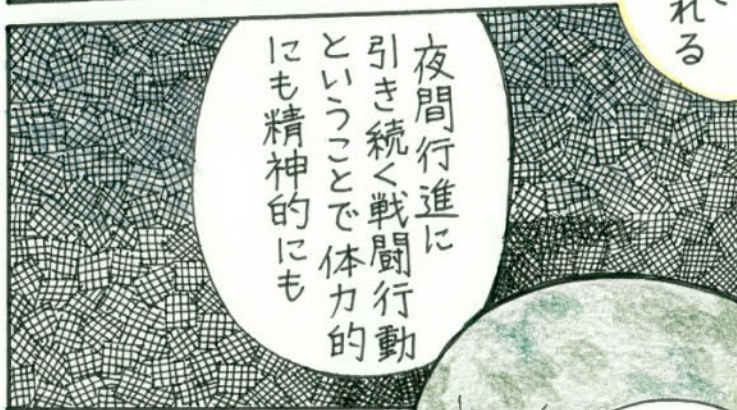 れる
夜間行進に
引き続く戦闘行動
ということで体力的
にも精神的にも